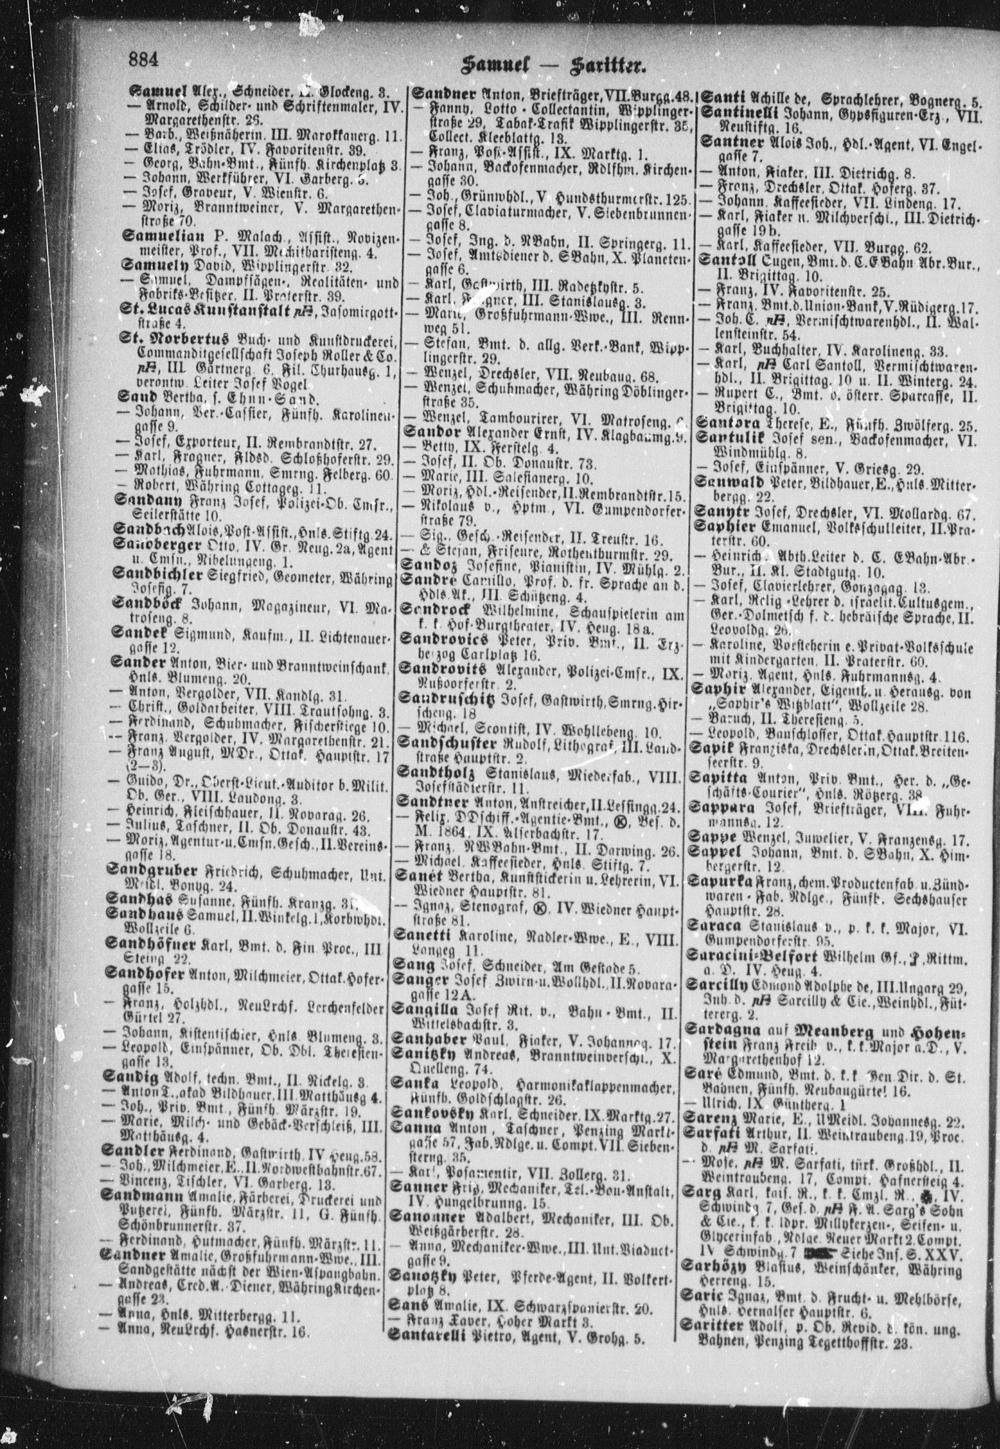 884
Samuel — Saritter.
Samuel Alex., Schneider, II. Glockeng. 3.
— Arnold, Schilder- und Schriftenmaler, IV.
Margarethenstr. 26.
— Barb., Weißnäherin, III. Marokkanerg. 11.
— Elias, Trödler, IV. Favoritenstr. 39.
— Georg, Bahn-Bmt., Fünfh. Kirchenplatz 3.
— Johann, Werkführer, VI. Garberg.
— Josef, Graveur, V. Wienstr. 6.
— Moriz, Branntweiner, V. Margarethen-
straße 70.
Samuelian P. Malach., Assist., Novizen-
meister, Prof., VII. Mechitharisteng. 4.
Samuely David, Wipplingerstr. 32.
— Samuel, Dampfsägen-, Realitäten- und
Fabriks-Besitzer, II. Praterstr. 39.
St. Lucas Kunstanstalt pH, Jasomirgott-
straße 4.
St. Norbertus Buch- und Kunstdruckerei,
Commanditgesellschaft Joseph Roller & Co.
pH, III. Gärtnerg. 6, Fil. Thurhausg. 1,
verantw. Leiter Josef Vogel.
Sand Bertha, s. Ehnn-Sand.
— Johann, Ver.-Cassier, Fünfh. Karolinen-
gasse 9.
— Josef, Exporteur, II. Rembrandtstr. 27.
— Karl, Fragner, Fldsd. Schloßhoferstr. 29.
— Mathias, Fuhrmann, Smrng. Felberg. 60.
— Robert, Währing Cottageg. 11.
Sandany Franz Josef, Polizei-Ob. Cmsr.,
Seilerstätte 10.
Sandbach Alois, Post-Assist., Hnls. Stiftg. 24.
Sandberger Otto, IV. Gr. Neug. 2a, Agent
u. Cmsn., Nibelungeng. 1.
Sandbichler Siegfried, Geometer, Währing
Josefig. 7.
Sandböck Johann, Magazineur, VI. Ma-
troseng. 8.
Sandek Sigmund, Kaufm., II. Lichtenauer-
gasse 12.
Sander Anton, Bier- und Branntweinschank,
Hnls. Blumeng. 20.
— Anton, Vergolder, VII. Kandlg. 31.
— Christ., Goldarbeiter, VIII. Trautsohng. 3.
— Ferdinand, Schuhmacher, Fischerstiege 10.
— Franz, Vergolder, IV. Margarethenstr. 21.
— Franz August, MDr., Ottak. Hauptstr. 17
(2—3).
— Guido, Dr., Oberst-Lieut.-Auditor b. Milit.
Ob. Ger., VIII. Laudong. 3.
— Heinrich, Fleischhauer, II. Novarag. 26.
— Julius, Taschner, II. Ob. Donaustr. 43.
— Moriz, Agentur-u. Cmsn. Gesch., II. Vereins-
gasse 18.
Sandgruber Friedrich, Schuhmacher, Unt.
Meidl. Bonyg. 24.
Sandhas Susanne, Fünfh. Kranzg.
Sandhaus Samuel, II. Winkelg. 1, Korbwhdl.
Wollzeile 6.
Sandhöfner Karl, Bmt. d. Fin. Proc., III
Steing. 22.
Sandhofer Anton, Milchmeier, Ottak. Hofer-
gasse 15.
— Franz, Holzhdl., NeuLrchf. Lerchenfelder
Gürtel 27.
— Johann, Kistentischler, Hnls. Blumeng. 3.
— Leopold, Einspänner, Ob. Dbl. Theresien-
gasse 13.
Sandig Adolf, techn. Bmt., II. Nickelg. 3.
— Anton T., akad. Bildhauer, III. Matthäusg. 4.
— Joh., Priv. Bmt., Fünfh. Märzstr. 19.
— Marie, Milch- und Gebäck-Verschleiß, III.
Matthäusg. 4.
Sandler Ferdinand, Gastwirth, IV. Heug. 58.
— Joh., Milchmeier, E., II. Nordwestbahnstr. 67.
— Vincenz, Tischler, VI. Garberg. 13.
Sandmann Amalie, Färberei, Druckerei und
Putzerei, Fünfh. Märzstr. 11, G. Fünfh.
Schönbrunnerstr. 37.
— Ferdinand, Hutmacher, Fünfh. Märzstr. 11.
Sandner Amalie, Großfuhrmann-Wwe., III.
Sandgestätte nächst der Wien-Aspangbahn.
— Andreas, Cred. A.-Diener, Währing Kirchen-
gasse 23.
— Anna, Hnls. Mitterbergg. 11.
— Anna, NeuLrchf. Hasnerstr. 16.
Sandner Anton, Briefträger, VII. Burgg. 48.
— Fanny, Lotto-Collectantin, Wipplinger-
straße 29, Tabak-Trafik Wipplingerstr. 35,
Collect. Kleeblattg. 13.
— Franz, Post-Assist., IX. Marktg. 1.
— Johann, Backofenmacher, Rdlfshm. Kirchen-
gasse 30.
— Joh., Grünwhdl., V. Hundsthurmerstr. 125.
— Josef, Claviaturmacher, V. Siebenbrunnen-
gasse 8.
— Josef, Ing. d. NBahn, II. Springerg. 11.
— Josef, Amtsdiener d. SBahn, X. Planeten-
gasse 6.
— Karl, Gastwirth, III. Radetzkystr. 5.
— Karl, Fragner, III. Stanislausg. 3.
— Marie, Großfuhrmann-Wwe., III. Renn-
weg 51.
— Stefan, Bmt. d. allg. Verk.-Bank, Wipp-
lingerstr. 29.
— Wenzel, Drechsler, VII. Neubaug. 68.
— Wenzel, Schuhmacher, Währing Döblinger-
straße 35.
— Wenzel, Tambourirer, VI. Matroseng.
Sandor Alexander Ernst, IV. Klagbaumg. 9.
— Betty, IX. Ferstelg. 4.
— Josef, II. Ob. Donaustr. 73.
— Marie, III. Salesianerg. 10.
— Moriz, Hdl.-Reisender, II. Rembrandtstr. 15.
— Nikolaus v., Hptm., VI. Gumpendorfer-
straße 79.
— Sig., Gesch.-Reisender, II. Treustr. 16.
— & Stefan, Friseure, Rothenthurmstr. 29.
Sandoz Josefine, Pianistin, IV. Mühlg. 2.
Sandré Camillo, Prof. d. fr. Sprache an d.
Hdls. Ak., III. Schützeng. 4.
Sandrock Wilhelmine, Schauspielerin am
k. k. Hof-Burgtheater, IV. Heug. 18a.
Sandrovics Peter, Priv. Bmt., II. Erz-
herzog Carlplatz 16.
Sandrovits Alexander, Polizei-Cmsr., IX.
Nußdorferstr. 2.
Sandruschitz Josef, Gastwirth, Smrng. Hir-
scheng. 18
— Michael, Scontist, IV. Wohllebeng. 10.
Sandschuster Rudolf, Lithograf, III. Land-
straße Hauptstr. 2.
Sandtholz Stanislaus, Miederfab., VIII.
Josefstädterstr. 11.
Sandtner Anton, Anstreicher, II. Lessingg. 24.
— Felix, DDschiff.-Agentie-Bmt., Ⓚ, Bes. d.
M. 1864, IX. Alserbachstr. 17.
— Franz, NWBahn-Bmt., II. Darwing. 26.
— Michael, Kaffeesieder, Hnls. Stiftg. 7.
Sanét Bertha, Kunststickerin u. Lehrerin, VI.
Wiedner Hauptstr. 81.
— Ignaz, Stenograf, Ⓚ, IV. Wiedner Haupt-
straße 81.
Sanetti Karoline, Nadler-Wwe., E., VIII.
Langeg. 11.
Sang Josef, Schneider, Am Gestade 5.
Sanger Josef, Zwirn-u. Wollhdl., II. Novara-
gasse 12A.
Sangilla Josef Rit. v., Bahn-Bmt., II.
Wittelsbachstr. 3.
Sanhaber Paul, Fiaker, V. Johannag. 17.
Sanitzky Andreas, Branntweinverschl., X.
Quelleng. 74.
Sanka Leopold, Harmonikaklappenmacher,
Fünfh. Goldschlagstr. 26.
Sankovsky Karl, Schneider, IX. Marktg. 27.
Sanna Anton, Taschner, Penzing Markt-
gasse 57, Fab. Ndlge. u. Compt. VII. Sieben-
sterng. 35.
— Karl, Posamentir, VII. Zollerg. 31.
Sanner Friz, Mechaniker, Tel.-Bau-Anstalt,
IV. Hungelbrunng. 15.
Sanonner Adalbert, Mechaniker, III. Ob.
Weißgärberstr. 28.
— Anna, Mechaniker-Wwe., III. Unt. Viaduct-
gasse 9.
Sanotzky Peter, Pferde-Agent, II. Volkert-
platz 8.
Sans Amalie, IX. Schwarzspanierstr. 20.
— Franz Xaver, Hoher Markt 3.
Santarelli Pietro, Agent, V. Grohg. 5.
Santi Achille de, Sprachlehrer, Bognerg. 5.
Santinelli Johann, Gypsfiguren-Erz., VII.
Neustiftg. 16.
Santner Alois Joh., Hdl.-Agent, VI. Engel-
gasse 7.
— Anton, Fiaker, III. Dietrichg. 8.
— Franz, Drechsler, Ottak. Hoferg. 37.
— Johann, Kaffeesieder, VII. Lindeng. 17.
— Karl, Fiaker u. Milchverschl., III. Dietrich-
gasse 19b.
— Karl, Kaffeesieder, VII. Burgg. 62.
Santoll Eugen, Bmt. d. C. EBahn Abr. Bur.,
II. Brigittag. 10.
— Franz, IV. Favoritenstr. 25.
— Franz, Bmt. d. Union-Bank, V. Rüdigerg. 17.
— Joh. C. pH, Vermischtwarenhdl., II. Wal-
lensteinstr. 54.
— Karl, Buchhalter, IV. Karolineng. 33.
— Karl, pH Carl Santoll, Vermischtwaren-
hdl., II. Brigittag. 10 u. II. Winterg. 24.
— Rupert C., Bmt. d. österr. Sparcasse, II.
Brigittag. 10.
Santora Therese, E., Fünfh. Zwölferg. 25.
Santulik Josef sen., Backofenmacher, VI.
Windmühlg. 8.
— Josef, Einspänner, V. Griesg. 29.
Sanwald Peter, Bildhauer, E., Hnls. Mitter-
bergg. 22.
Sanytr Josef, Drechsler, VI. Mollardg. 67.
Saphier Emanuel, Volksschulleiter, II. Pra-
terstr. 60.
— Heinrich, Abth. Leiter d. C. EBahn-Abr.-
Bur., II. Kl. Stadtgutg. 10.
— Josef, Clavierlehrer, Gonzagag. 13.
— Karl, Relig.-Lehrer d. israelit. Cultusgem.,
Ger.-Dolmetsch f. d. hebräische Sprache, II.
Leopoldg. 26.
— Karoline, Vorsteherin e. Privat-Volksschule
mit Kindergarten, II. Praterstr. 60.
— Moriz, Agent, Hnls. Fuhrmannsg. 4.
Saphir Alexander, Eigenth. u. Herausg. von
„Saphir's Witzblatt", Wollzeile 28.
— Baruch, II. Theresieng. 5.
— Leopold, Bauschlosser, Ottak. Hauptstr. 116.
Sapik Franziska, Drechslerin, Ottak. Breiten-
seerstr. 9.
Sapitta Anton, Priv. Bmt., Her. d. „Ge-
schäfts-Courier", Hnls. Rötzerg. 38
Sappara Josef, Briefträger, VIII. Fuhr-
mannsg. 12.
Sappe Wenzel, Juwelier, V. Franzensg. 17.
Sappel Johann, Bmt. d. SBahn, X. Him-
bergerstr. 12.
Sapurka Franz, chem. Productenfab. u. Zünd-
waren-Fab. Ndlge., Fünfh. Sechshauser
Hauptstr. 28.
Saraca Stanislaus v., p. k. k. Major, VI.
Gumpendorferstr. 95.
Saracini-Belfort Wilhelm Gf., P, Rittm.
a. D. IV. Heug. 4.
Sarcilly Edmond Adolphe de, III. Ungarg. 29,
Inh. d. pH Sarcilly & Cie., Weinhdl., Füt-
tererg. 2.
Sardagna auf Meanberg und Hohen-
stein Franz Freih. v., k. k. Major a. D., V.
Margarethenhof 12.
Saré Edmund, Bmt. d. k. k. Gen. Dir. d. St.
Bahnen, Fünfh. Neubaugürtel 16.
— Ulrich, IX. Güntherg. 1
Sarenz Marie, E., U. Meidl. Johannesg. 22.
Sarfati Arthur, II. Weintraubeng. 19, Proc.
d. pH M. Sarfati.
— Mose, pH M. Sarfati, türk. Großhdl., II.
Weintraubeng. 17, Compt. Hafnersteig 4.
Sarg Karl, kais. R., k. k. Cmzl. R., IV.
Schwindg. 7, Ges. d. pH F. A. Sarg's Sohn
& Cie., k. k. ldpr. Millykerzen-, Seifen- u.
Glycerinfab., Ndlge. Neuer Markt 2, Compt.
IV. Schwindg. 7 ☛ Siehe Ins. S. XXV.
Sarhözy Blasius, Weinschänker, Währing
Herreng. 15.
Saric Ignaz, Bmt. d. Frucht- u. Mehlbörse,
Hnls. Hernalser Hauptstr. 6.
Saritter Adolf, p. Ob. Revid. d. kön. ung.
Bahnen, Penzing Tegetthoffstr. 23.